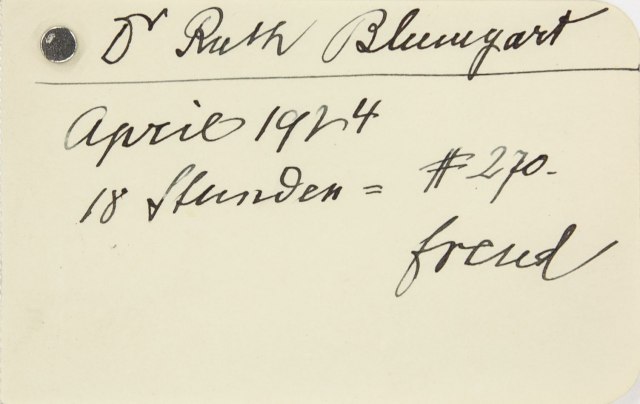 Dr Ruth Blumgart
April 1924
18 Stunden = #270.-
Freud